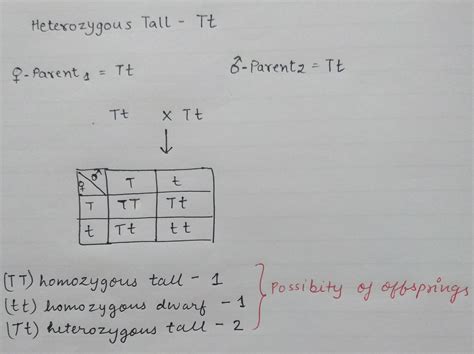 Heterozygous Tall - Tt
♀-Parent1 = Tt ♂-Parent2 = Tt
Tt x Tt
↓
♀ ♂ T t
T TT Tt
t Tt tt
(TT) homozygous tall - 1
(tt) homozygous dwarf - 1
(Tt) heterozygous tall - 2
Possibity of offsprings